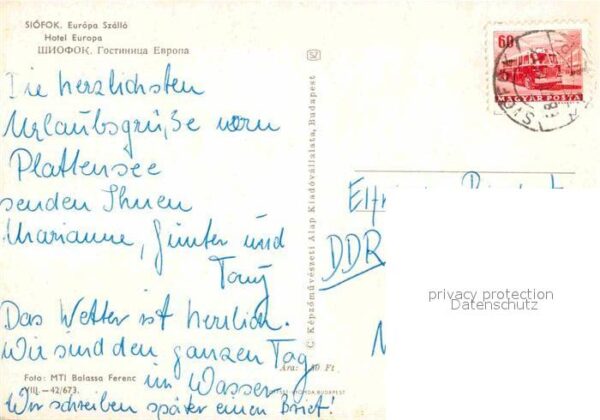 SIÓFOK. Európa Szálló
Hotel Europa
ШИОФОК. Гостиница Европа
Die herzlichsten
Urlaubsgrüße vom
Plattensee
senden Ihnen
Marianne, Günter und
Tony
Das Wetter ist herrlich.
Wir sind den ganzen Tag
im Wasser
Wir schreiben später einen Brief!
Foto: MTI Balassa Ferenc
VIII.–42/673.
Ára: Ft
© Képzőművészeti Alap Kiadóvállalata, Budapest
60f
MAGYAR POSTA
SIÓFOK
DDR
privacy protection
Datenschutz